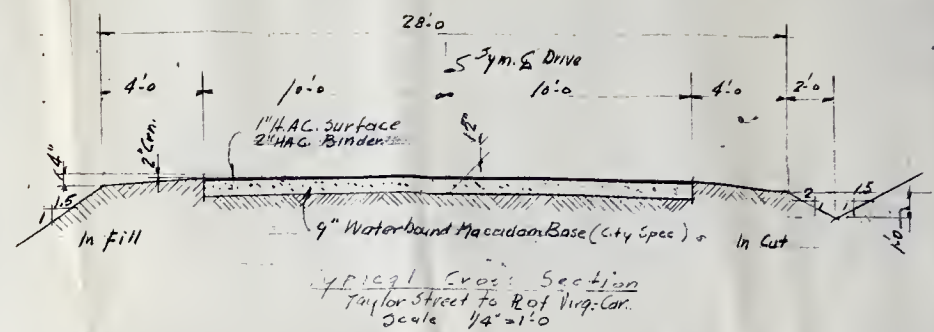 28'-0
Sym. ℄ Drive
4'-0
10'-0
10'-0
4'-0
2'-0
1" H.A.C. Surface
2" H.A.C. Binder
12"
4"
2" Crn.
1.5
1
2
1
1.5
1
1'-0
In Fill
9" Waterbound Macadam Base (City Spec)
In Cut
Typical Cross Section
Taylor Street to R of Virg.-Car.
Scale 1/4" = 1'-0